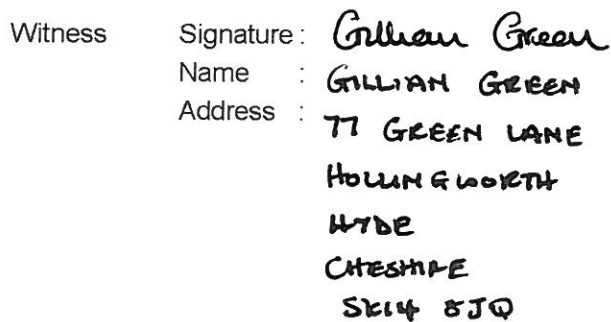 Witness Signature : Gillian Green
Name : GILLIAN GREEN
Address : 77 GREEN LANE
HOLLINGWORTH
HYDE
CHESHIRE
SK14 8JQ